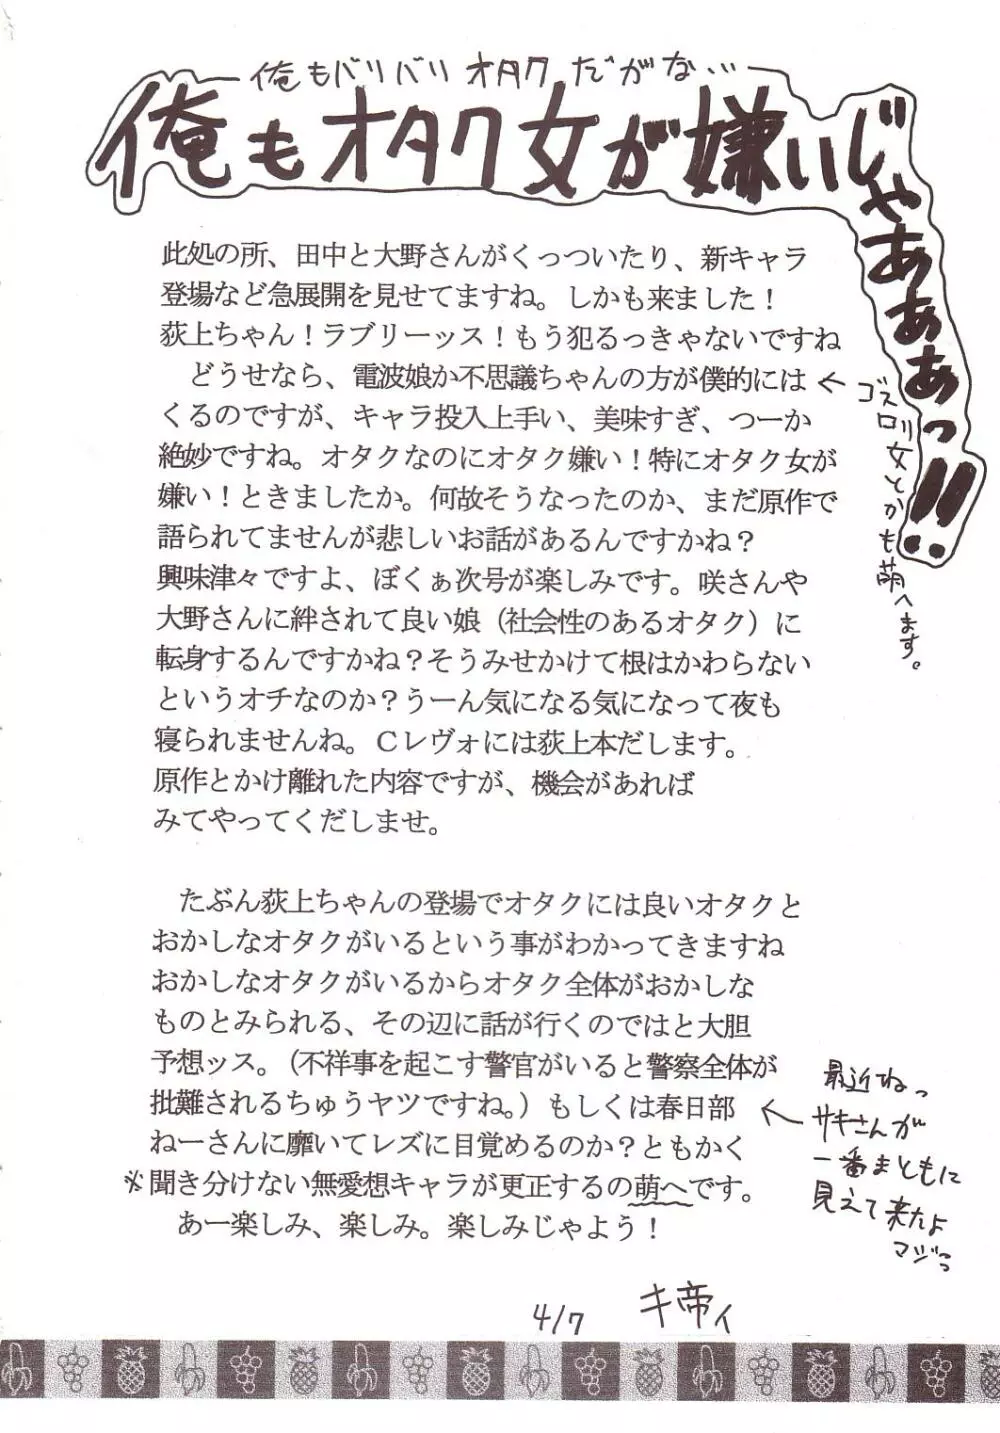 俺もバリバリオタクだがな...
俺もオタク女が嫌いじゃあああっ!!
此処の所、田中と大野さんがくっついたり、新キャラ
登場など急展開を見せてますね。しかも来ました！
荻上ちゃん！ラブリーッス！もう犯るっきゃないですね
どうせなら、電波娘か不思議ちゃんの方が僕的には
くるのですが、キャラ投入上手い、美味すぎ、つーか
絶妙ですね。オタクなのにオタク嫌い！特にオタク女が
嫌い！ときましたか。何故そうなったのか、まだ原作で
語られてませんが悲しいお話があるんですかね？
興味津々ですよ、ぼくぁ次号が楽しみです。咲さんや
大野さんに絆されて良い娘（社会性のあるオタク）に
転身するんですかね？そうみせかけて根はかわらない
というオチなのか？うーん気になる気になって夜も
寝られませんね。Ｃレヴォには荻上本だします。
原作とかけ離れた内容ですが、機会があれば
みてやってくだしませ。
←ゴスロリ女とかも萌へます。
たぶん荻上ちゃんの登場でオタクには良いオタクと
おかしなオタクがいるという事がわかってきますね
おかしなオタクがいるからオタク全体がおかしな
ものとみられる、その辺に話が行くのではと大胆
予想ッス。（不祥事を起こす警官がいると警察全体が
批難されるちゅうヤツですね。）もしくは春日部
ねーさんに靡いてレズに目覚めるのか？ともかく
※聞き分けない無愛想キャラが更正するの萌へです。
あー楽しみ、楽しみ。楽しみじゃよう！
←最近ねっ
サキさんが
一番まともに
見えて来たよ
マジでっ
4/7 キ帝ィ